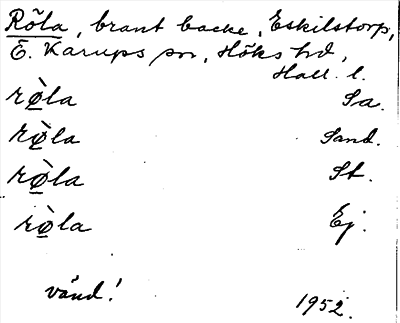 Röla, brant backe, Eskilstorp,
Ö. Karups sn, Höks hd,
Hall. l.
rø̀la Sa.
rø̀la Sand.
rø̀la St.
rø̀la Ej.
vänd! 1952.